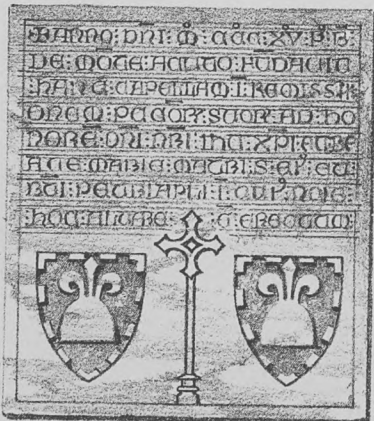 ANNO : DNI : M : CCC : XV : P : B :
DE : MOTE : ACUTO : FUDAVIT
HA : CAPELLAM : I : REMISSI
ONEM : PCCOR : SUOR : AD : HO
NORE : DNI : NRI : IHU : XPI : ET : BE
ATE : MARIE : MATRI : S : EI : ET :
BTI : PETRI : APLI : I : CUI : NOIE :
HOC : ALTARE : E : ERECTUM